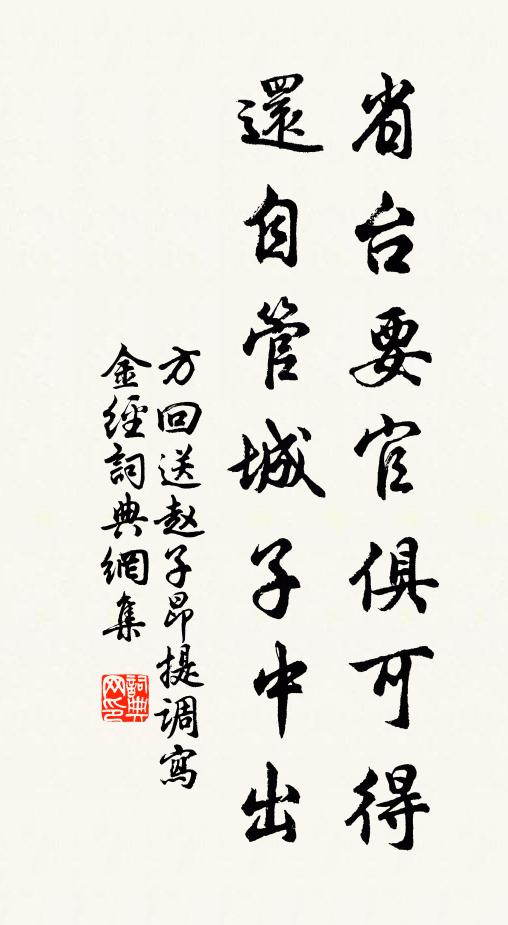 省台要官俱可得
還自管城子中出
方回送赵子昂提調寫
金經詞典網集
詞典
网印